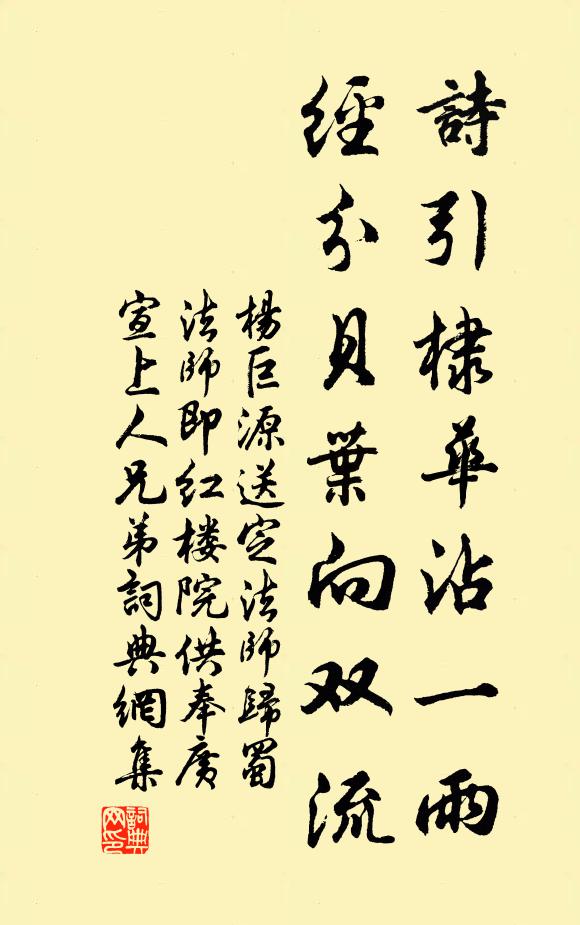 詩引棣華沾一雨
經分貝葉向双流
楊巨源送定法師歸蜀
法師即红楼院供奉廣
宣上人兄弟詞典網集
詞典网印